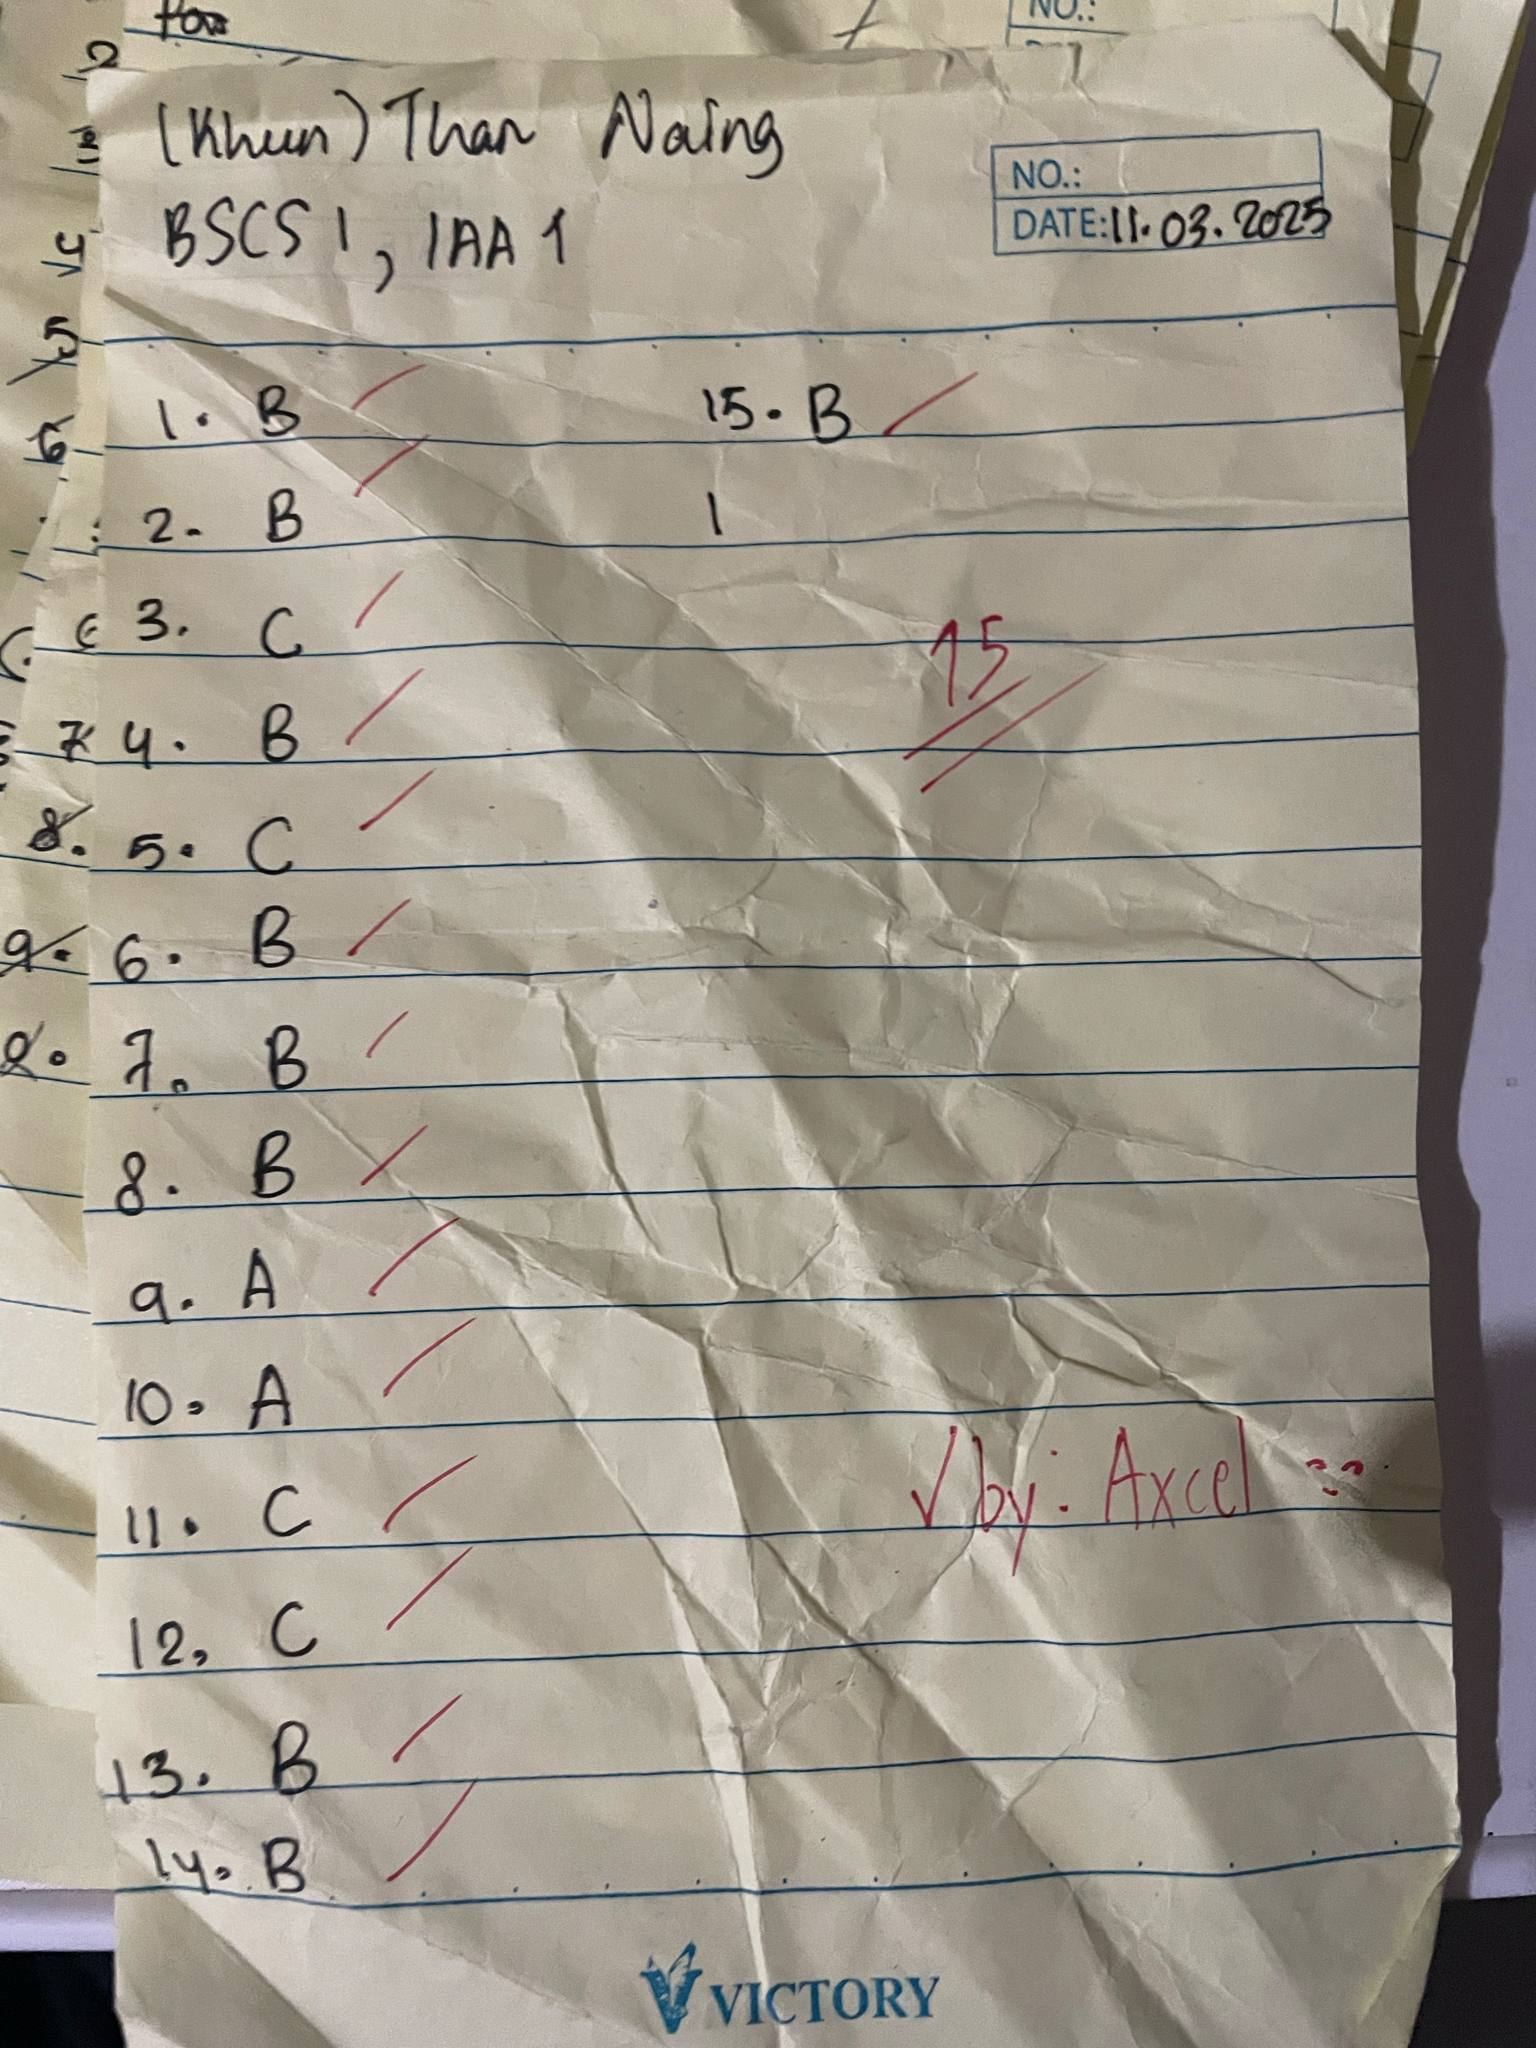 (Khun) Than Naing
BSCS 1, IAA 1
NO.:
DATE: 11.03.2025
1. B
2. B
3. C
4. B
5. C
6. B
7. B
8. B
9. A
10. A
11. C
12. C
13. B
14. B
15. B
1
15
√ by: Axcel
VICTORY
NO.:
2
4
5
6
7
8.
9.